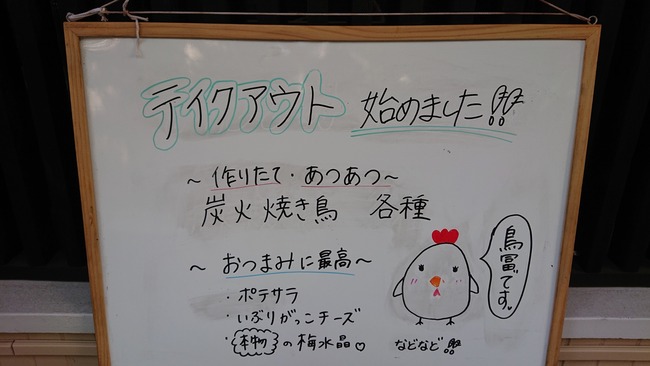 テイクアウト 始めました!!
～作りたて・あつあつ～
炭火焼き鳥 各種
～おつまみに最高～
・ポテサラ
・いぶりがっこチーズ
・本物の梅水晶♡
などなど!!
鳥冨です♡